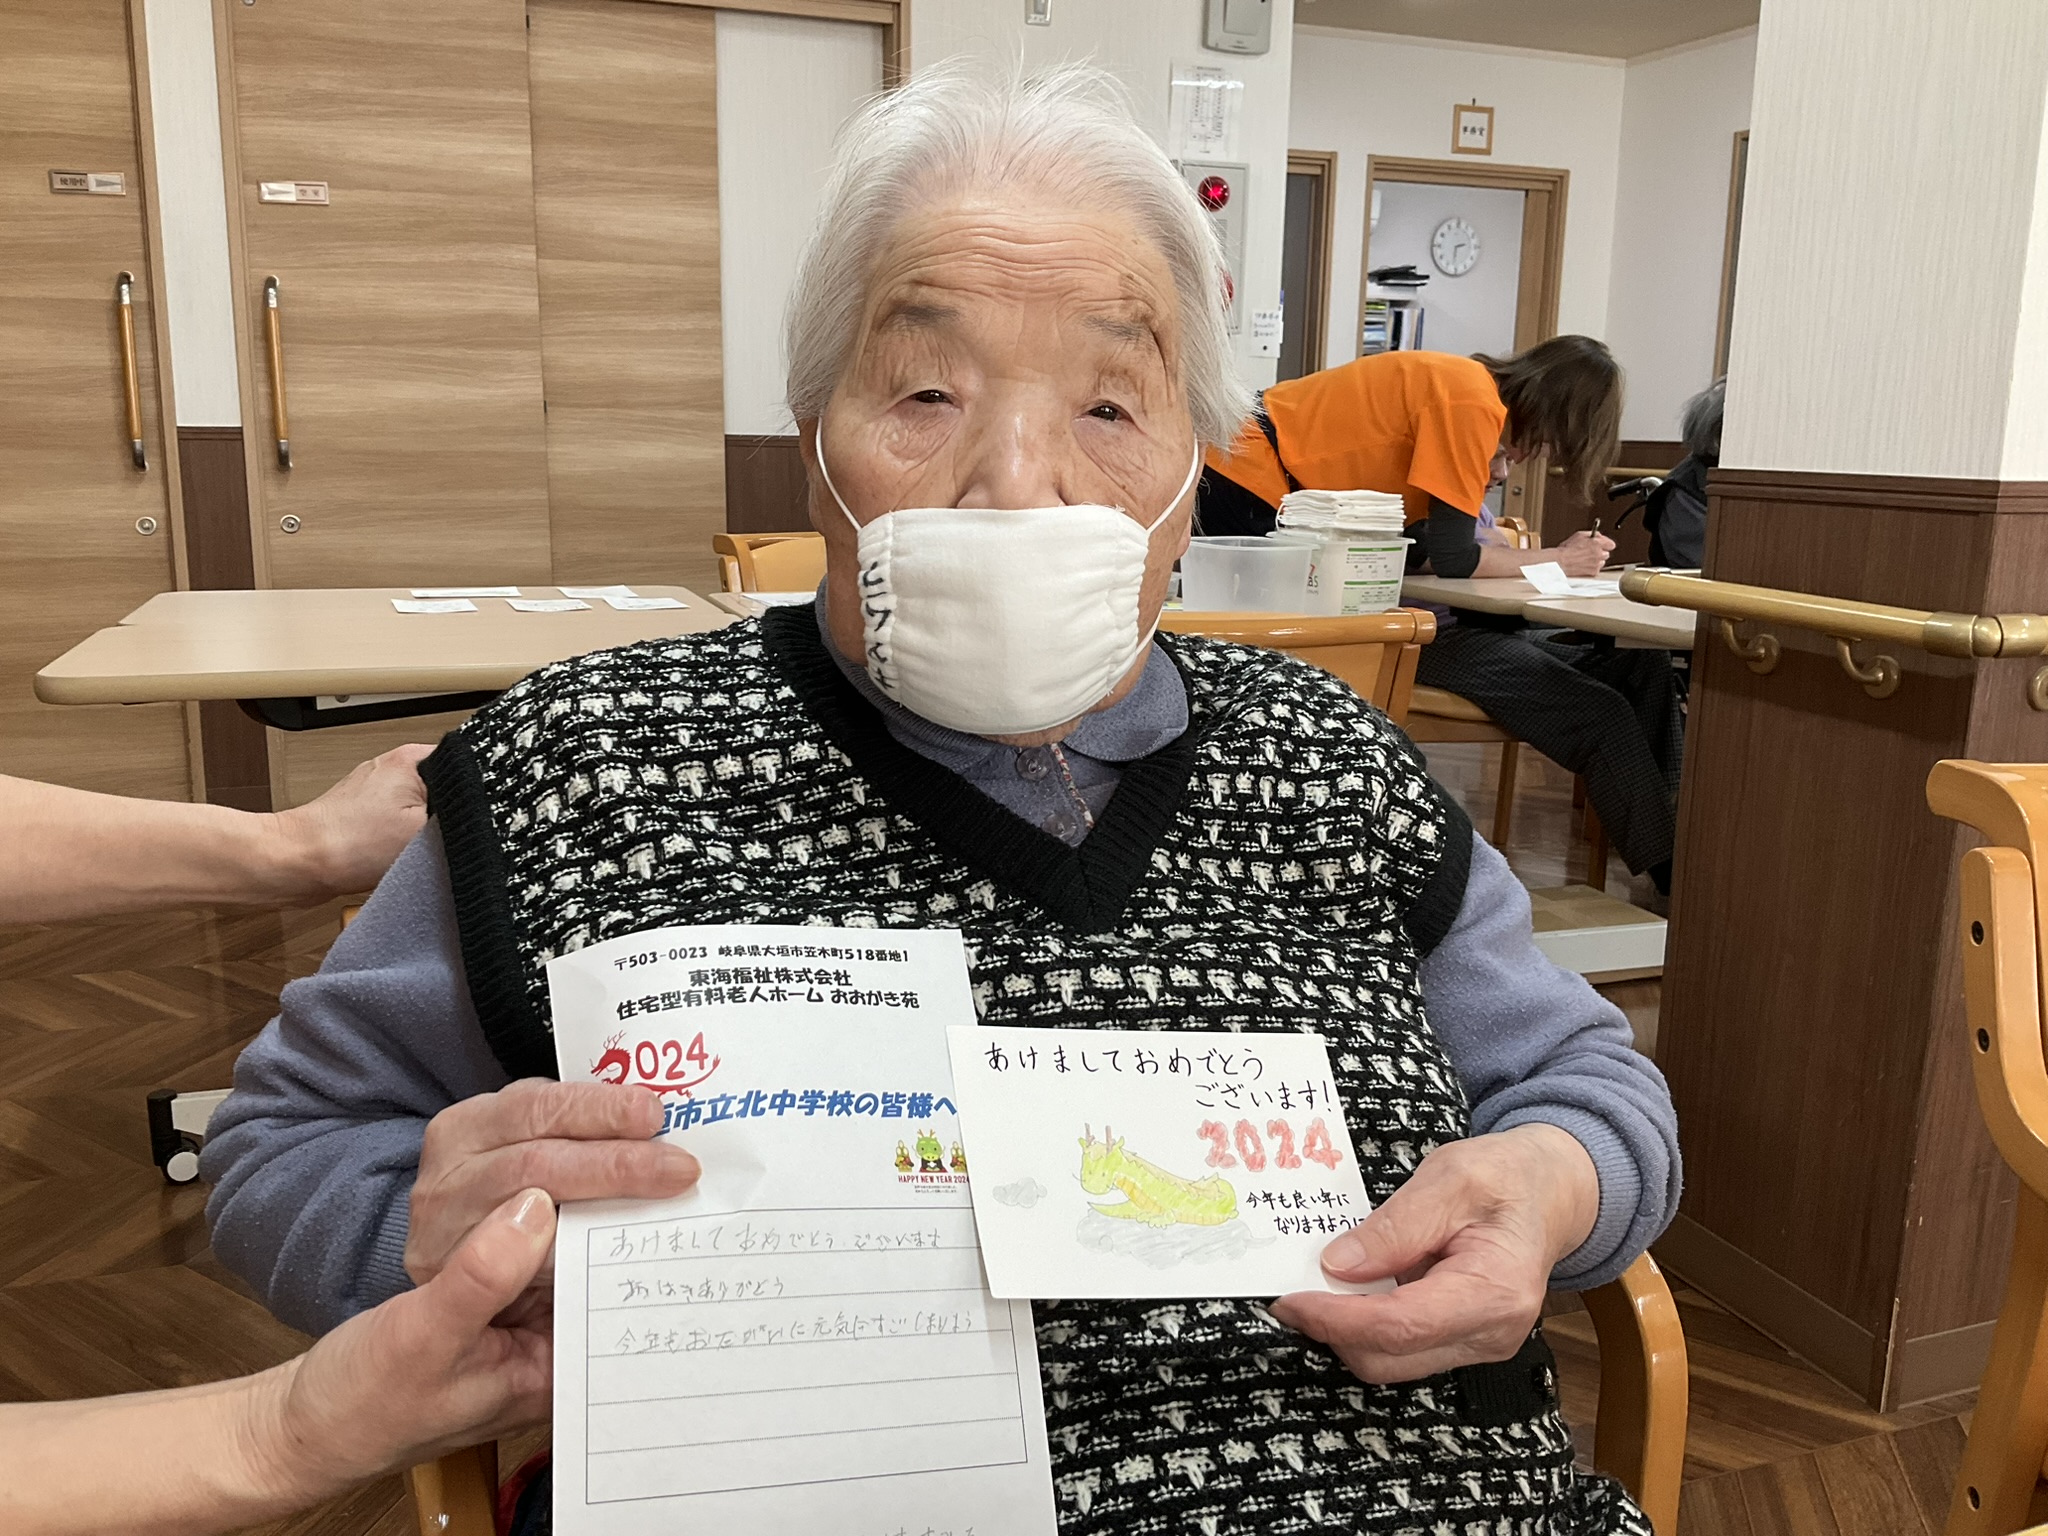 使用中
空室
事務室
〒503-0023 岐阜県大垣市笠木町518番地1
東海福祉株式会社
住宅型有料老人ホーム おおがき苑
2024
垣市立北中学校の皆様へ
HAPPY NEW YEAR 2024
あけましておめでとう.ございます
おはがきありがとう
今年もおたがいに元気ですごしましょう
あけましておめでとう
ございます!
2024
今年も良い年に
なりますように